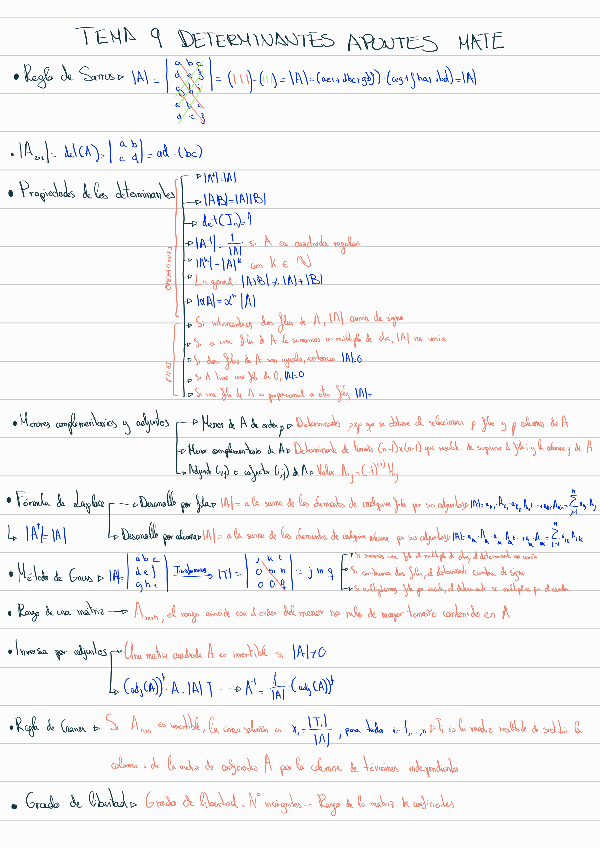 TEMA 9 DETERMINANTES APUNTES MATE
• Regla de Sarrus → |A| = | a b c
d e f
g h i
a b c
d e f | = (|||)-(|||) = |A| = (aei+dhc+gbf)-(ceg+fha+ibd) = |A|
• |A₂ₓ₂| = det(A) = | a b
c d | = ad-(bc)
• Propiedades de los determinantes
OPERACIONES
→ |Aᵗ|=|A|
→ |AB|=|A||B|
→ det(Iₙ)=1
→ |A⁻¹| = 1/|A| si A es cuadrada regular
→ |Aᵏ|=|A|ᵏ con k ∈ ℕ
→ En general |A+B| ≠ |A|+|B|
→ |αA|=αⁿ|A|
FILAS
→ Si intercambias dos filas de A, |A| cambia de signo
→ Si a una fila de A le sumamos un múltiplo de otra, |A| no varía
→ Si dos filas de A son iguales, entonces |A|=0
→ Si A tiene una fila de 0, |A|=0
→ Si una fila de A es proporcional a otra fila, |A|=
• Menores complementarios y adjuntos
→ Menor de A de orden p → Determinante pxp que se obtiene al seleccionar p filas y p columnas de A
→ Menor complementario de A → Determinante de tamaño (n-1)x(n-1) que resulta de suprimir la fila i y la columna j de A
→ Adjunto (i,j) o cofactor (i,j) de A → Valor Aᵢⱼ=(-1)ⁱ⁺ʲ Mᵢⱼ
• Fórmula de Laplace → Desarrollo por filas → |A| = a la suma de los elementos de cualquier fila por sus adjuntos
↳ |Aᵗ|=|A| → Desarrollo por columnas → |A| = a la suma de los elementos de cualquier columna por sus adjuntos
• Método de Gauss → |A| = | a b c
d e f
g h i | → |T| = | j k l
0 m n
0 0 q | = j m q
→ Si sumamos una fila el múltiplo de otra, el determinante no varía
→ Si cambiamos dos filas, el determinante cambia de signo
→ Si multiplicamos fila por escalar, el determinante se multiplica por el escalar
• Rango de una matriz → Aₘₓₙ, el rango coincide con el orden del menor no nulo de mayor tamaño contenido en A
• Inversa por adjuntos → Una matriz cuadrada A es invertible si |A|≠0
→ (adj(A))ᵗ · A = |A| I → A⁻¹ = 1/|A| · (adj(A))ᵗ
• Regla de Cramer → Si Aₙₓₙ es invertible, la única solución es xᵢ = |Tᵢ|/|A|, para todo i=1,...,n → Tᵢ es la matriz resultado de sustituir la
columna i de la matriz de A por la columna de términos independientes
• Grados de libertad → Grados de libertad = Nº incógnitas - Rango de la matriz de coeficientes